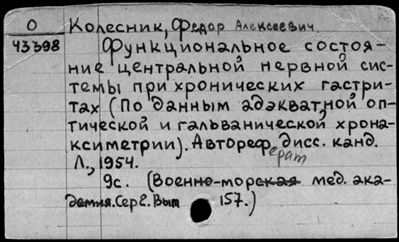 О Колесник, Федор Алексеевич.
43398 Функциональное состоя-
ние центральной нервной сис-
темы при хронических гастри-
тах (По данным адэкватной оп-
тической и гальванической хрона-
ксиметрии). Автореферат дисс. канд.
Л., 1954.
9с. (Военно-морская мед. ака-
демия. Сер 2. Вып 157.)